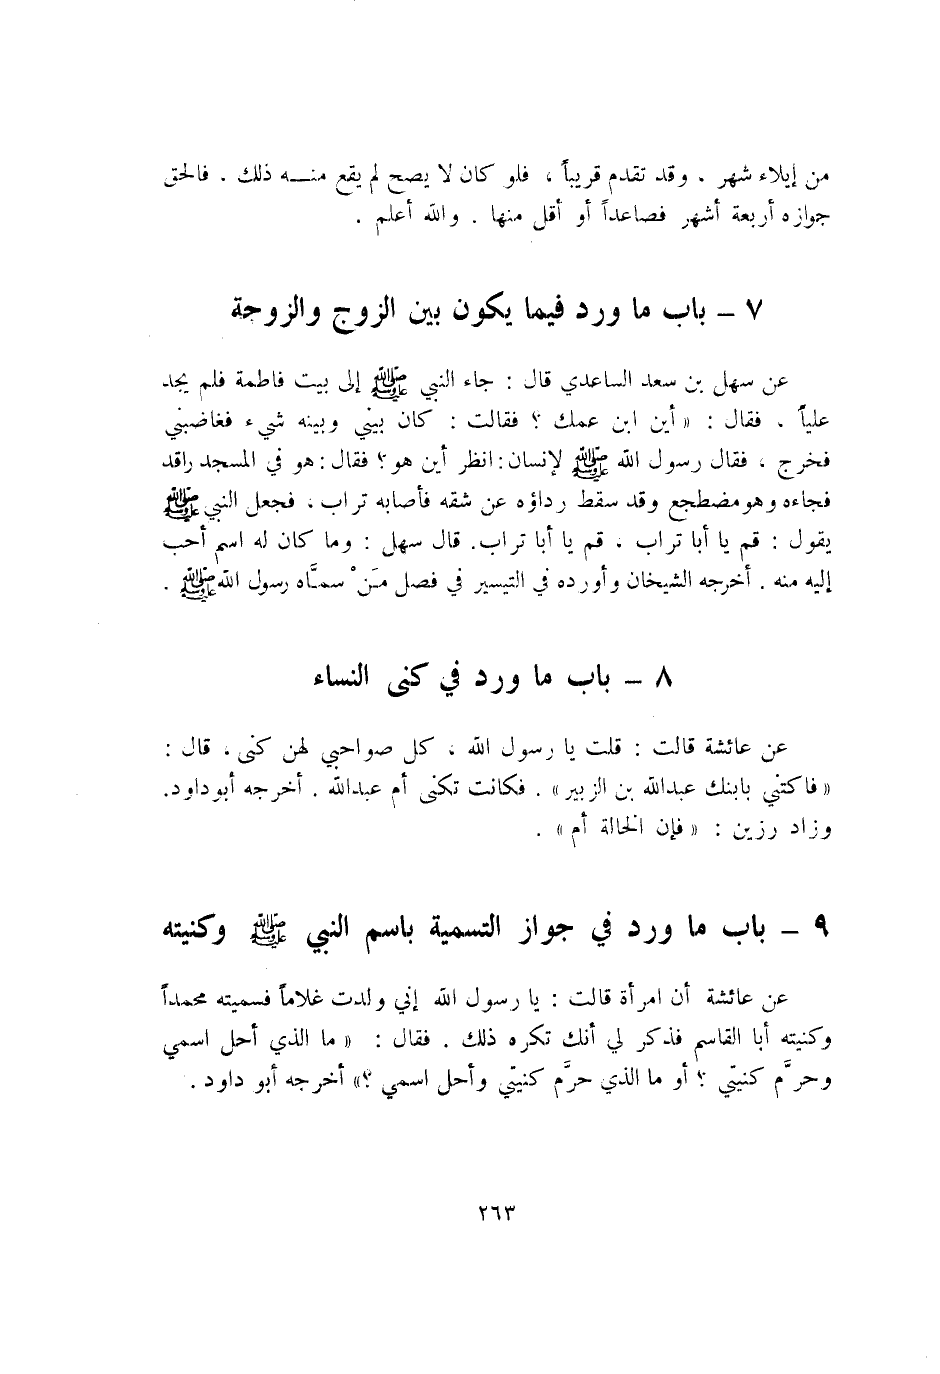 من إيلاء شهر . وقد تقدم قريباً ، فلو كان لا يصح لم يقع منـــه ذلك . فالحق
جوازه أربعة أشهر فصاعداً أو أقل منها . والله أعلم .
٧ – باب ما ورد فيما يكون بين الزوج والزوجة
عن سهل بن سعد الساعدي قال : جاء النبي ﷺ إلى بيت فاطمة فلم يجد
علياً . فقال : « أين ابن عمك ؟ فقالت : كان بيني وبينه شيء فغاضبني
فخرج ، فقال رسول الله ﷺ لإنسان : انظر أين هو؟ فقال : هو في المسجد راقد
فجاءه وهو مضطجع وقد سقط رداؤه عن شقه فأصابه تراب ، فجعل النبي ﷺ
يقول : قم يا أبا تراب ، قم يا أبا تراب . قال سهل : وما كان له اسم أحب
إليه منه . أخرجه الشيخان وأورده في التيسير في فصل مَنْ سمَّاه رسول الله ﷺ .
٨ – باب ما ورد في كنى النساء
عن عائشة قالت : قلت يا رسول الله ، كل صواحبي لهن كنى ، قال :
« فاكتني بابنك عبدالله بن الزبير » . فكانت تكنى أم عبدالله . أخرجه أبو داود.
وزاد رزين : « فإن الخالة أم » .
٩ – باب ما ورد في جواز التسمية باسم النبي ﷺ وكنيته
عن عائشة أن امرأة قالت : يا رسول الله إني ولدت غلاماً فسميته محمداً
وكنيته أبا القاسم فذكر لي أنك تكره ذلك . فقال : « ما الذي أحل اسمي
وحرَّم كنيتي ؟ أو ما الذي حرَّم كنيتي وأحل اسمي ؟» أخرجه أبو داود .
٢٦٣